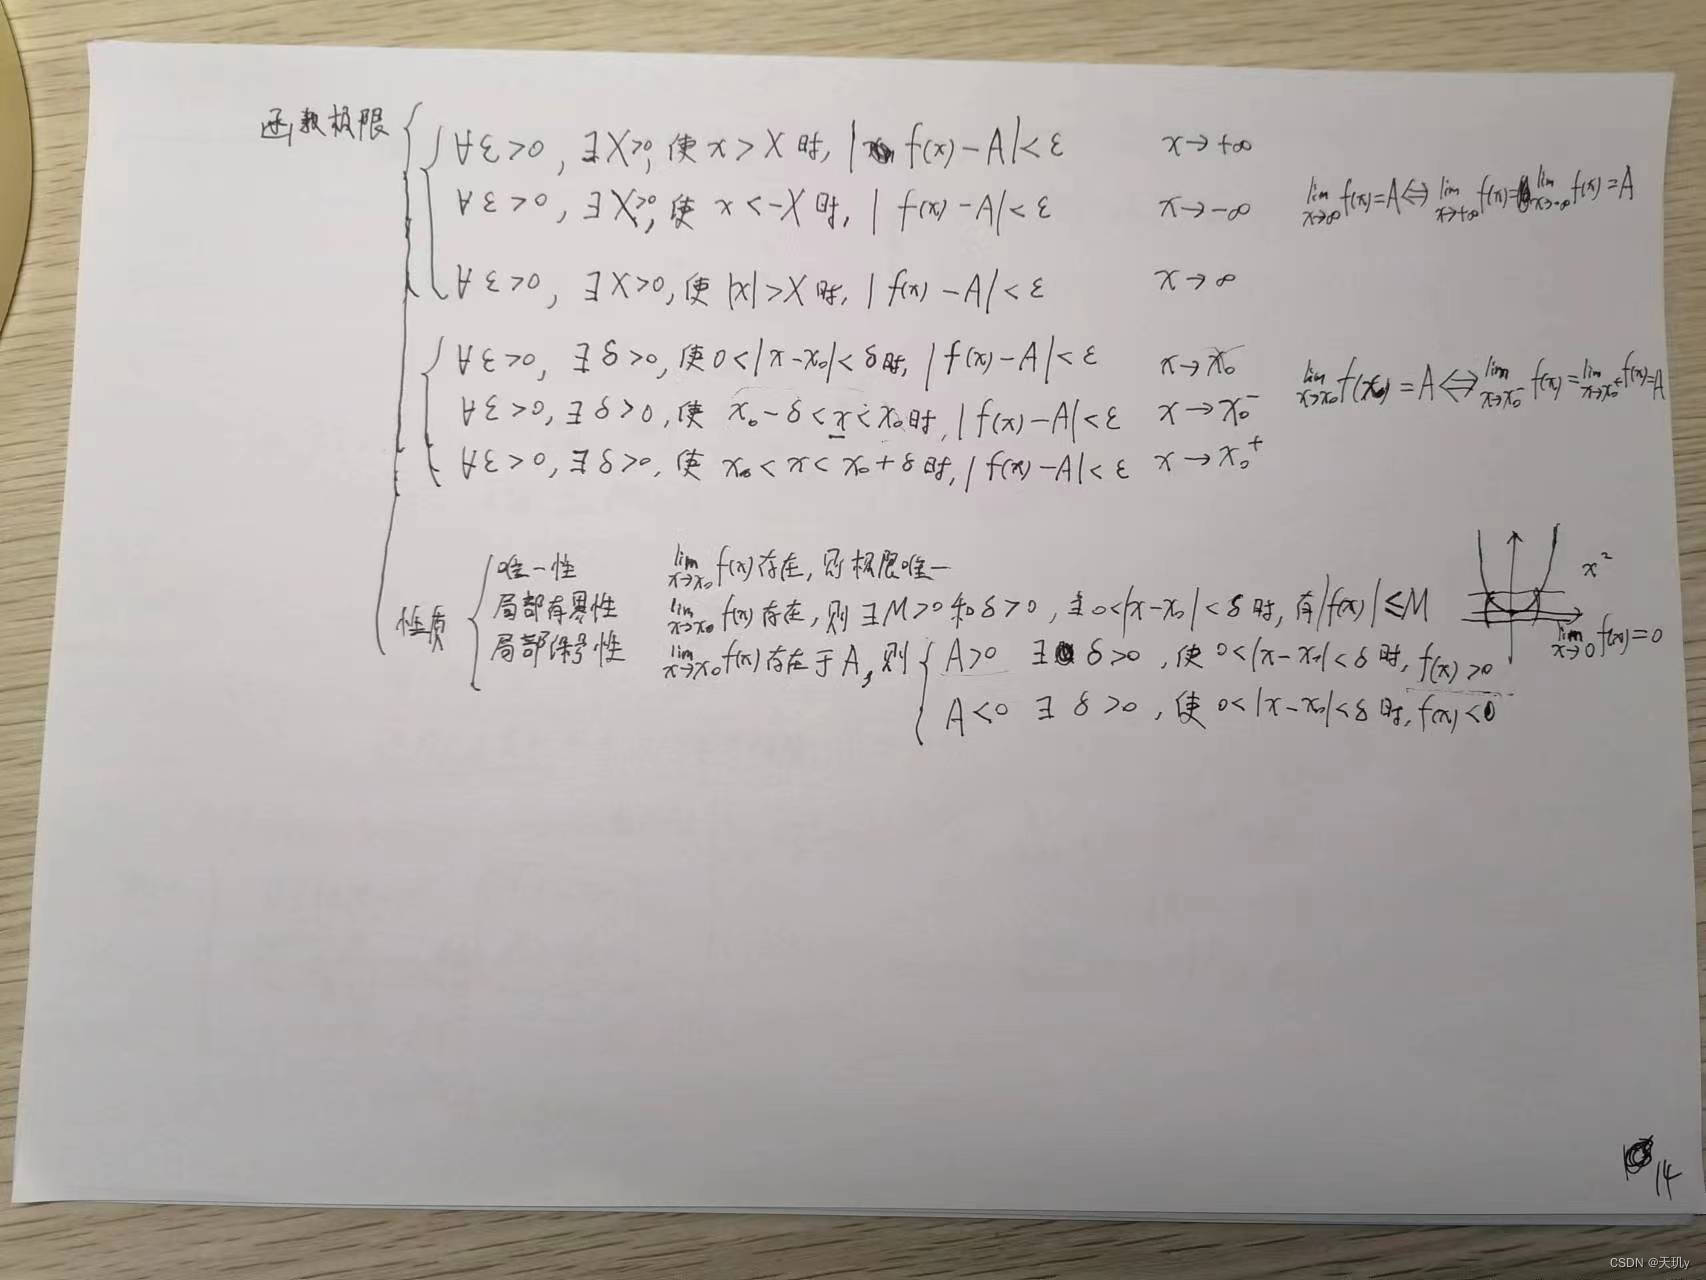 函数极限
∀ε>0, ∃X>0, 使 x>X 时, |f(x)-A|<ε x→+∞
∀ε>0, ∃X>0, 使 x<-X 时, |f(x)-A|<ε x→-∞ lim x→∞ f(x)=A⇔lim x→+∞ f(x)=lim x→-∞ f(x)=A
∀ε>0, ∃X>0, 使 |x|>X 时, |f(x)-A|<ε x→∞
∀ε>0, ∃δ>0, 使 0<|x-x₀|<δ 时, |f(x)-A|<ε x→x₀ lim x→x₀ f(x₀)=A⇔lim x→x₀⁻ f(x)=lim x→x₀⁺ f(x)=A
∀ε>0, ∃δ>0, 使 x₀-δ<x<x₀ 时, |f(x)-A|<ε x→x₀⁻
∀ε>0, ∃δ>0, 使 x₀<x<x₀+δ 时, |f(x)-A|<ε x→x₀⁺
性质
唯一性 lim x→x₀ f(x)存在, 则极限唯一
x²
局部有界性 lim x→x₀ f(x)存在, 则∃M>0和δ>0, 0<|x-x₀|<δ时, 有|f(x)|≤M
lim x→0 f(x)=0
局部保号性 lim x→x₀ f(x)存在于A, 则 A>0 ∃δ>0, 使 0<|x-x₀|<δ时, f(x)>0
A<0 ∃δ>0, 使 0<|x-x₀|<δ时, f(x)<0
14
CSDN @天玑y